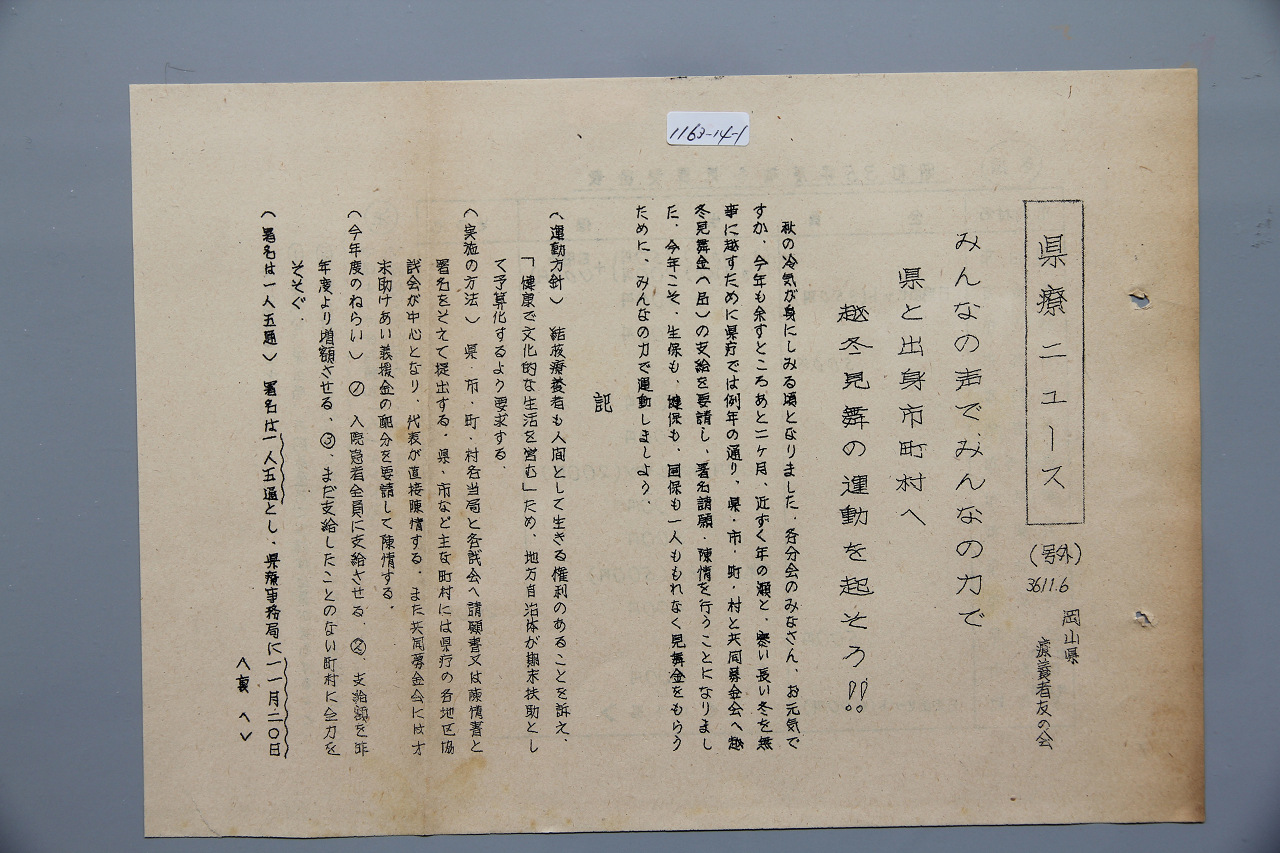 1163-14-1
県療ニュース
(号外)
36.11.6
岡山県
療養者友の会
みんなの声でみんなの力で
県と出身市町村へ
越冬見舞の運動を起そう!!
秋の冷気が身にしみる頃となりました。各分会のみなさん、お元気で
すか。今年も余すところあと二ケ月、近ずく年の瀬と、寒い長い冬を無
事に越すために県庁では例年の通り、県・市・町・村と共同募金会へ越
冬見舞金(品)の支給を要請し、署名請願・陳情を行うことになりまし
た。今年こそ、生保も、健保も、国保も一人ももれなく見舞金をもらう
ために、みんなの力で運動しましょう。
記
(運動方針) 結核療養者も人間として生きる権利のあることを訴え、
「健康で文化的な生活を営む」ため、地方自治体が期末扶助とし
て予算化するよう要求する。
(実施の方法) 県・市・町・村各当局と各試会へ請願書又は陳情書と
署名をそえて提出する。県・市など主な町村には県庁の各地区協
試会が中心となり、代表が直接陳情する。また共同募金会には才
末助けあい義援金の配分を要請して陳情する。
(今年度のねらい) ① 入院患者全員に支給させる。②、支給額を昨
年度より増額させる。③、まだ支給したことのない町村に全力を
そそぐ。
(署名は一人五通) 署名は一人五通とし、県療事務局に一一月二〇日
(裏へ)